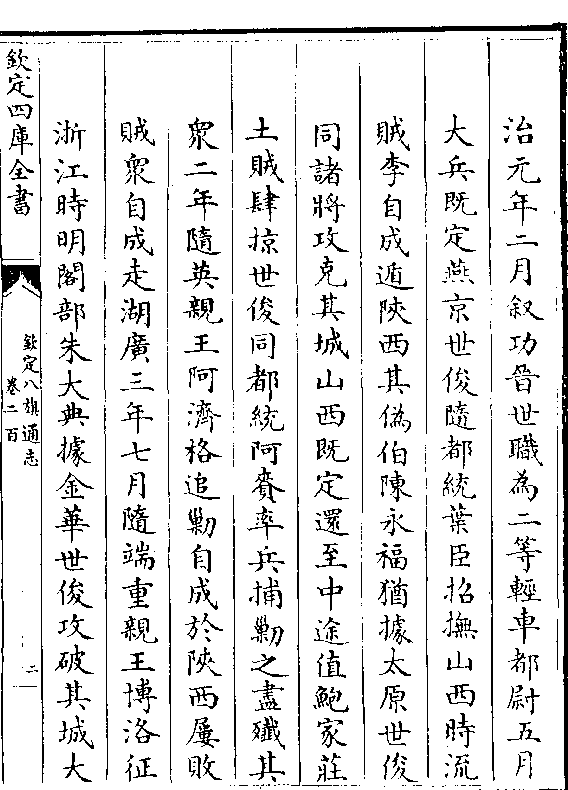 治元年二月叙功晉世職為二等輕車都尉五月
大兵既定燕京世俊隨都統葉臣招撫山西時流
賊李自成遁陜西其偽伯陳永福猶據太原世俊
同諸將攻克其城山西既定還至中途值鮑家莊
土賊肆掠世俊同都統阿賚率兵捕勦之盡殲其
衆二年隨英親王阿濟格追勦自成於陜西屢敗
賊衆自成走湖廣三年七月隨端重親王博洛征
浙江時明閣部朱大典據金華世俊攻破其城大
欽定四庫全書
欽定八旗通志
卷二百
二